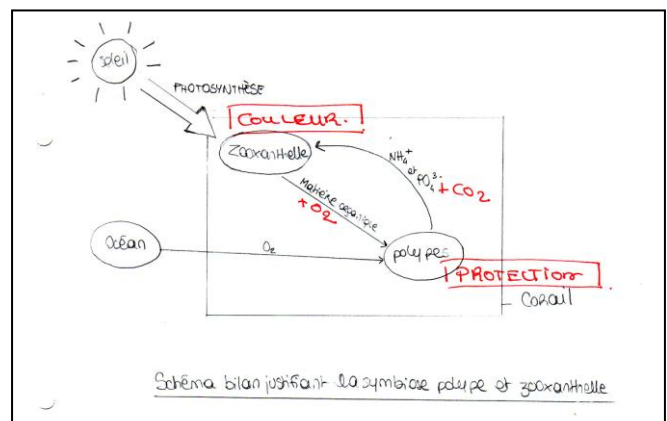 Soleil
PHOTOSYNTHÈSE
COULEUR.
Zooxanthelle
NH₄⁺
et PO₄³⁻
+ CO₂
Matière organique
+ O₂
Océan
O₂
polypes
PROTECTION
Corail
Schéma bilan justifiant la symbiose polype et zooxanthelle